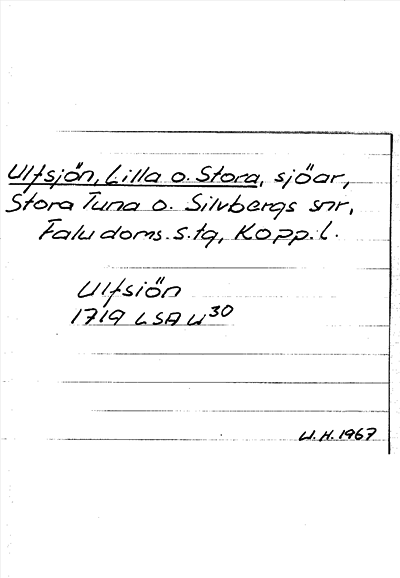 Ulfsjön, Lilla o. Stora, sjöar,
Stora Tuna o. Silvbergs snr,
Falu doms.s.tg, Kopp. l.
Ulfsiön
1719 LSA U30
U.H. 1967